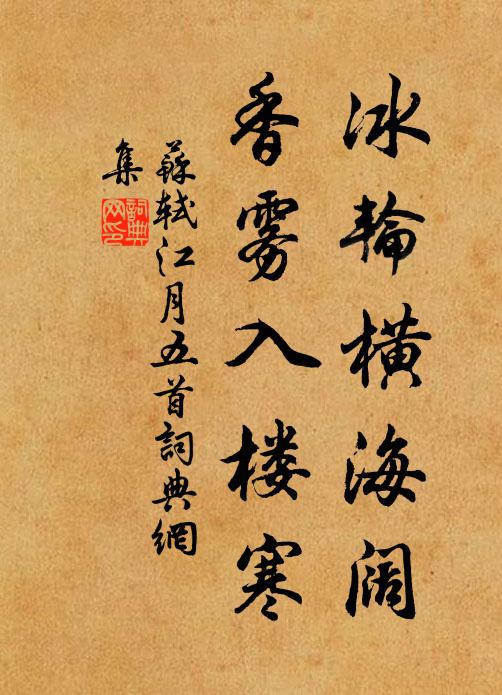 冰輪橫海阔
香雾入楼寒
蘇轼江月五首詞典網
集
詞典
网印